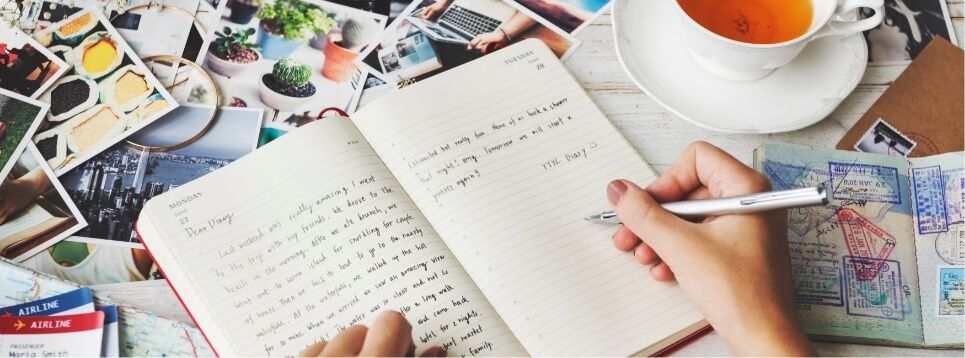 MONDAY
June
27
Dear Diary
Last weekend was really amazing. I went
to the trip with my friends. We drove to the
beach in the morning. After we ate brunch, we
went out to some island for snorkling for couple
of hours. Then we back to land to go to the nearby
waterfall. At the waterfall, we walked up the hill
for 20 mins. When we arrived we saw an amazing view
The water was so clear and not so
a long walk
and came back
hotel for 2 nights.
market
family.
TUESDAY
June
28
Exhausted but really fun. None of us took a shower
that night! omg. Tomorrow we will start a
journey again!
TTYL Diary
AIRLINE
AIRLINE
PASSENGER
Maria Smith